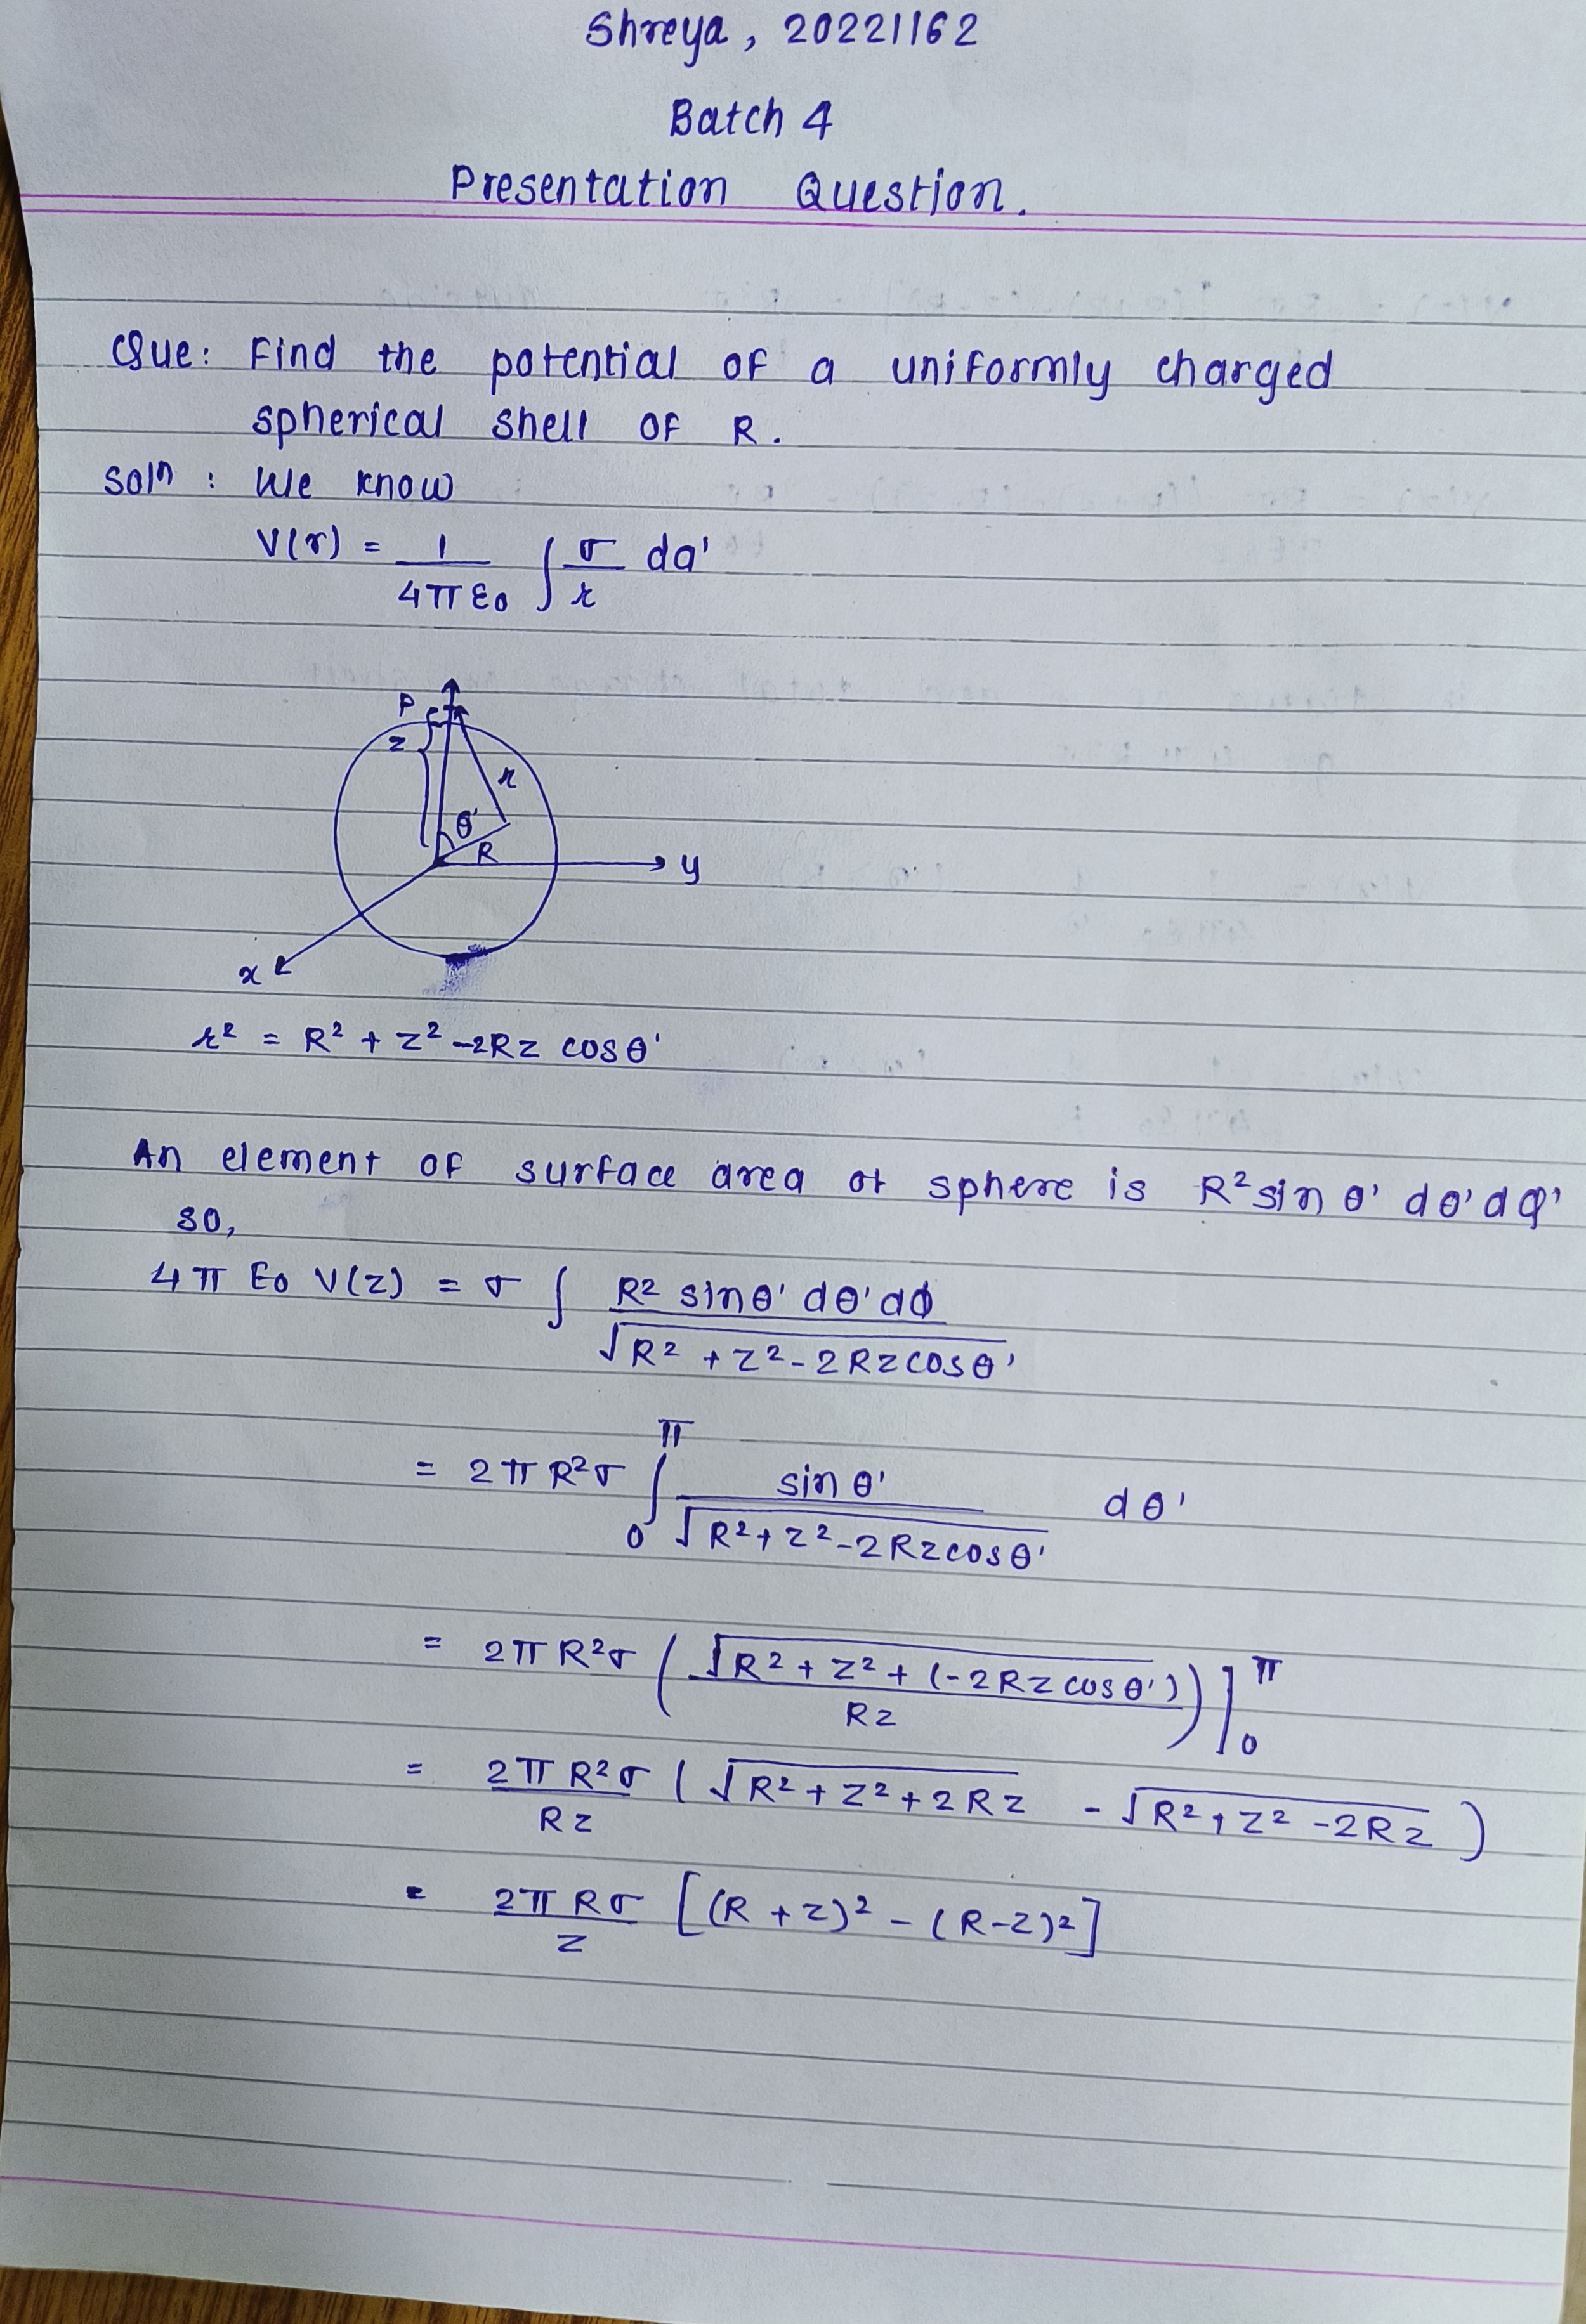 Shreya, 20221162
Batch 4
Presentation Question.
Que: Find the potential of a uniformly charged
spherical shell of R.
Soln : We know
V(r) = 1/4πε0 ∫ σ/r da'
P
z
r
θ'
R
y
x
r² = R² + z² - 2Rz cosθ'
An element of surface area of sphere is R² sin θ' dθ' dφ'
so,
4π ε0 V(z) = σ ∫ R² sinθ' dθ' dϕ / √R² + z² - 2Rz cosθ'
= 2πR²σ ∫₀^π sin θ' / √R² + z² - 2Rz cosθ' dθ'
= 2πR²σ ( √R² + z² + (-2Rz cosθ') / Rz ) ]₀^π
= 2πR²σ / Rz ( √R² + z² + 2Rz - √R² + z² - 2Rz )
= 2πRσ / z [(R + z)² - (R-z)²]